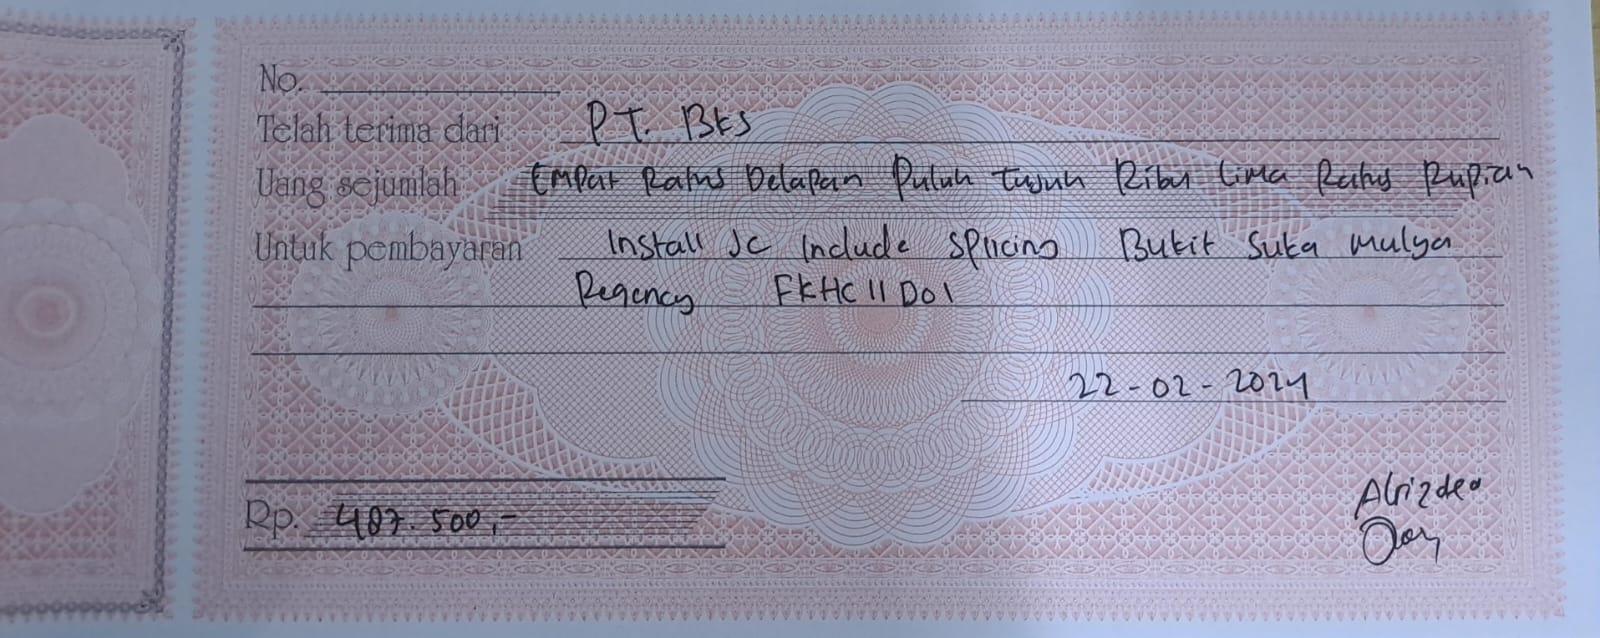 No.
Telah terima dari PT. BKS
Uang sejumlah Empat Ratus Delapan Puluh tujuh Ribu Lima Ratus Rupiah
Untuk pembayaran Install JC Include Splicing Bukit Suka Mulya
Regency FKHC11D01
22-02-2024
Rp. 487.500,-
Alrizdea